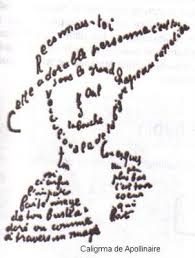 Reconnais-toi
Cette adorable personne c'est toi
Sous le grand chapeau canotier
Œil
la bouche
Voici l'ovale de ta figure
exquis
ci
enfin
l'imparfaite image
de ton buste a
doré vu comme
à travers un nuage
un peu
plus bas
c'est ton
cœur
qui
bat
Caligrma de Apollinaire